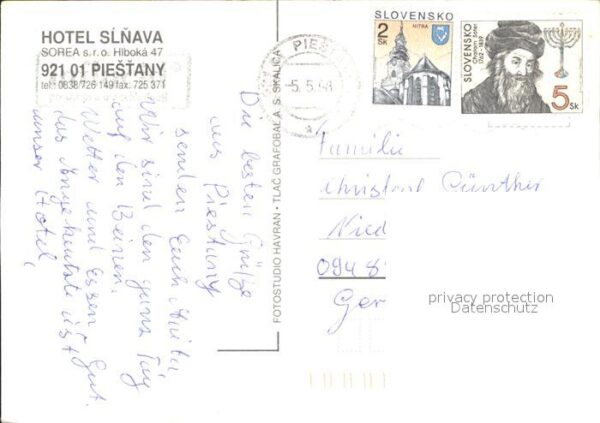 HOTEL SĹŇAVA
SOREA s.r.o. Hlboká 47
921 01 PIEŠŤANY
tel.: 0838/726 149 fax: 725 371
SLOVENSKO
2 Sk
NITRA
SLOVENSKO
Chatam Sófer
1762 - 1839
5 Sk
PIEŠ
5. 5. 98
FOTOSTUDIO HAVRAN • TLAČ GRAFOBAL A. S. SKALICA
Die besten Grüße
aus Piestany
senden Euch Anita
Wir sind den ganz Tag
auf den Beinen.
Wetter und Essen
das Angekreutzte ist
unser Hotel,
Gut.
Familie
Christard Günther
Nied
094 8
Ger
privacy protection
Datenschutz